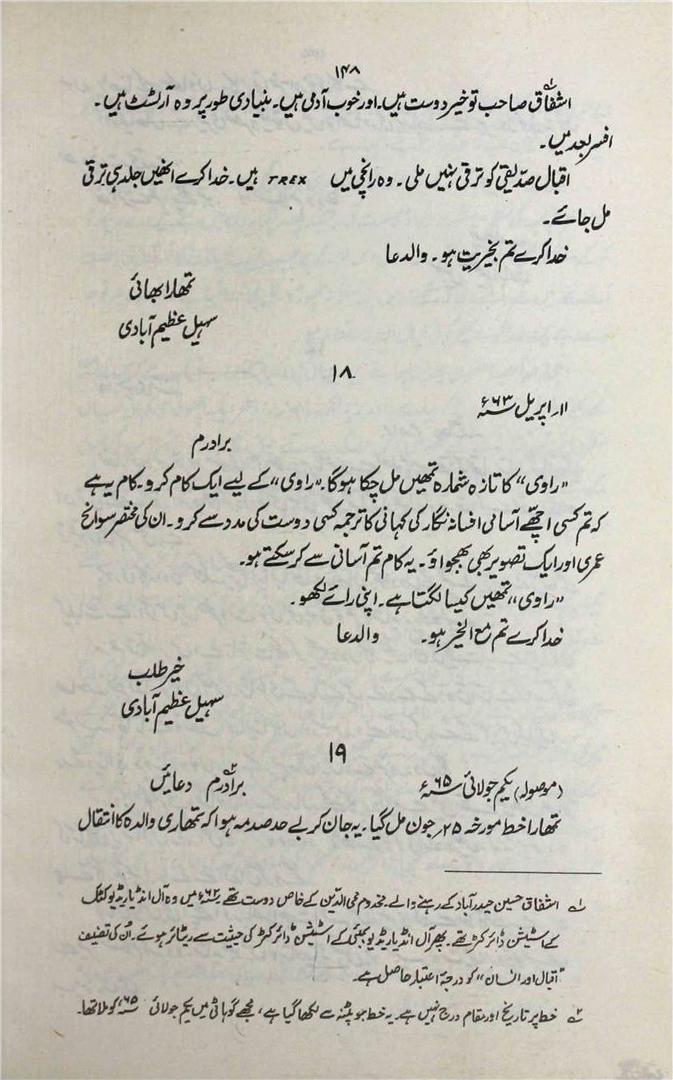 ۱۴۸
اشفاق۱؎ صاحب تو خیر دوست ہیں۔ اور خوب آدمی ہیں۔ بنیادی طور پر وہ آرٹسٹ ہیں۔
افسر بعد میں۔
اقبال صدیقی کو ترقی نہیں ملی۔ وہ رانچی میں TREX ہیں۔ خدا کرے انھیں جلد ہی ترقی
مل جائے۔
خدا کرے تم بخیریت ہو۔ والدعا
تمھارا بھائی
سہیل عظیم آبادی
۱۸
۱۱ر اپریل ۶۳ء
برادرم
”راوی“ کا تازہ شمارہ تمھیں مل چکا ہوگا۔ ”راوی“ کے لیے ایک کام کرو۔ کام یہ ہے
کہ تم کسی اچھے آسامی افسانہ نگار کی کہانی کا ترجمہ کسی دوست کی مدد سے کرو۔ ان کی مختصر سوانح
عمری اور ایک تصویر بھی بھجواؤ۔ یہ کام تم آسانی سے کر سکتے ہو۔
”راوی“ تمھیں کیسا لگتا ہے۔ اپنی رائے لکھو۔
خدا کرے تم مع الخیر ہو۔ والدعا
خیر طلب
سہیل عظیم آبادی
۱۹
(موصولہ) یکم جولائی ۶۵ء
برادرم۲؎ دعائیں
تمھارا خط مورخہ ۲۵ر جون مل گیا۔ یہ جان کر بے حد صدمہ ہوا کہ تمھاری والدہ کا انتقال
۱؎ اشفاق حسین حیدرآباد کے رہنے والے۔ مخدوم محی الدین کے خاص دوست تھے ۶۲ء میں وہ آل انڈیا ریڈیو کٹک
کے اسٹیشن ڈائرکٹر تھے۔ پھر آل انڈیا ریڈیو بمبئی کے اسٹیشن ڈائرکٹر کی حیثیت سے ریٹائر ہوئے۔ اُن کی تصنیف
”اقبال اور انسان“ کو درجۂ اعتبار حاصل ہے۔
۲؎ خط پر تاریخ اور مقام درج نہیں ہے۔ یہ خط جو پٹنہ سے لکھا گیا ہے، مجھے گوہاٹی میں یکم جولائی ۶۵ء کو ملا تھا۔